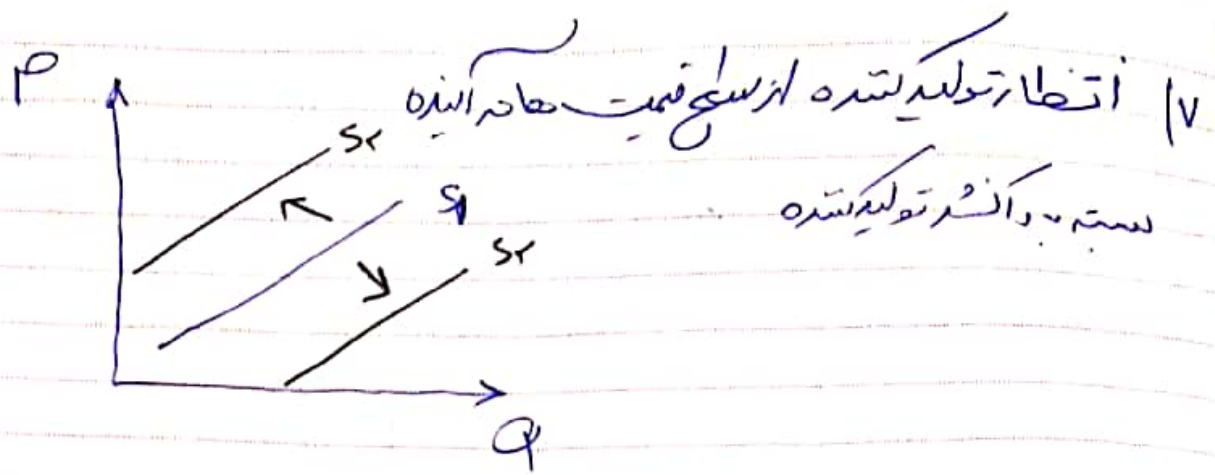 ۷) انتظار تولید کننده از سطح قیمت های آینده
بسته به واکنش تولید کننده
P
S۲
S۱
S۲
Q